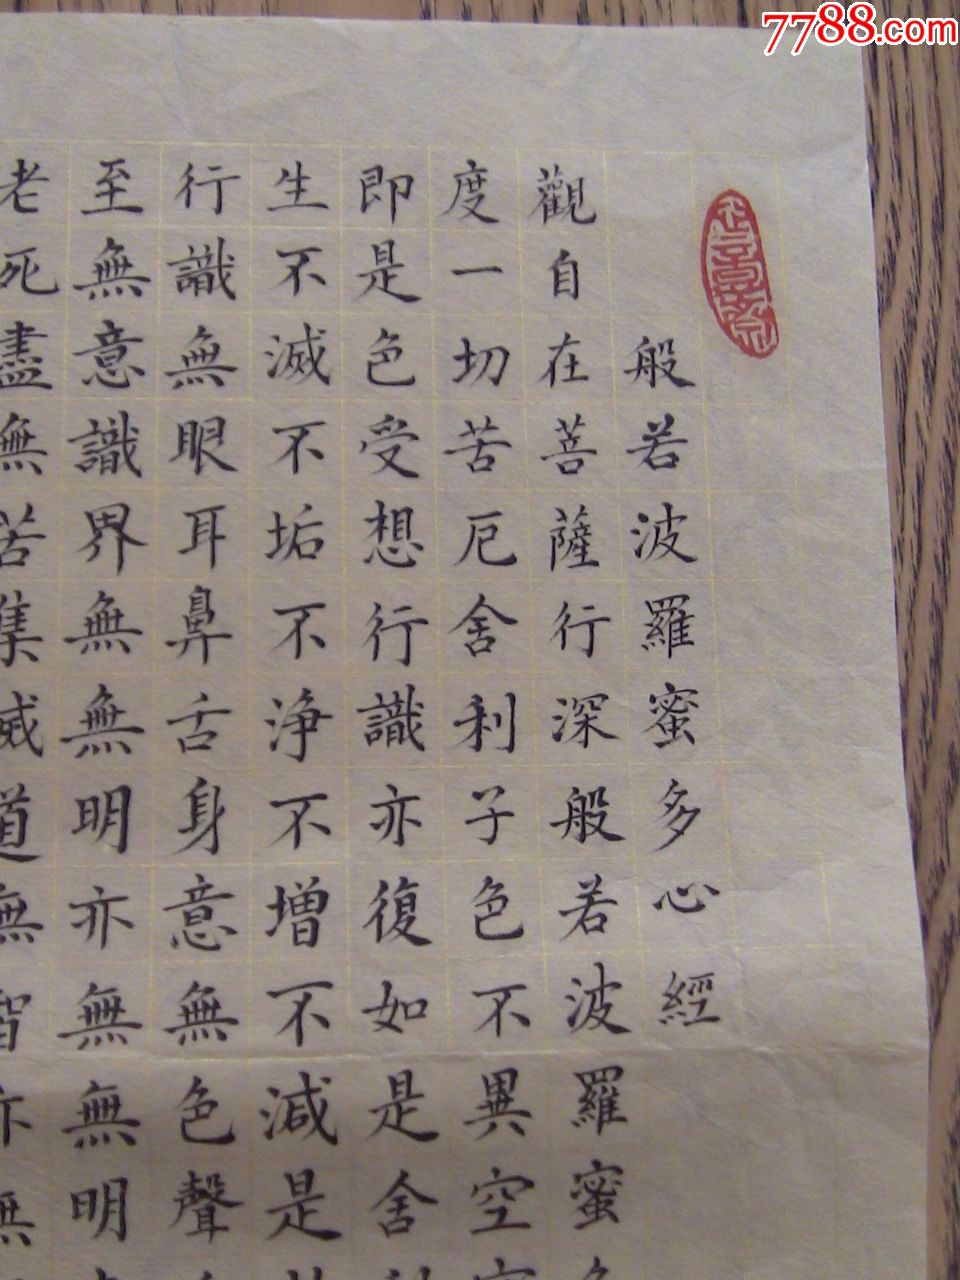 7788.com
般若波羅蜜多心經
觀自在菩薩行深般若波羅蜜
度一切苦厄舍利子色不異空
即是色受想行識亦復如是舍
生不滅不垢不淨不增不減是
行識無眼耳鼻舌身意無色聲
至無意識界無無明亦無無明
老死盡無苦集滅道無智亦無